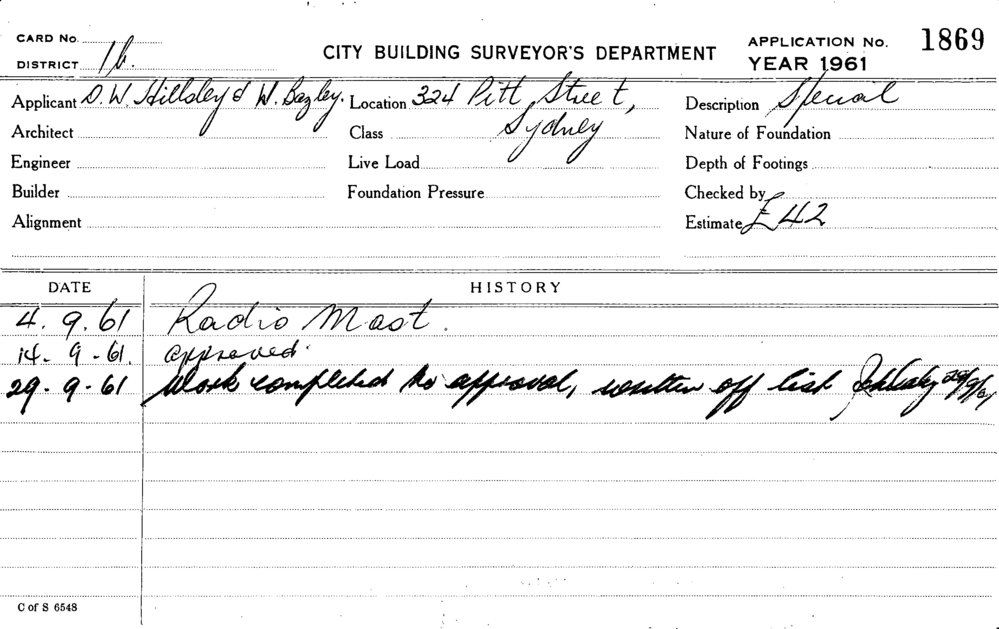 CARD No.
DISTRICT 1b.
CITY BUILDING SURVEYOR'S DEPARTMENT
APPLICATION No. 1869
YEAR 1961
Applicant D. W. Hillsley & W. Bazley. Location 324 Pitt Street, Description Special
Architect Class Sydney Nature of Foundation
Engineer Live Load Depth of Footings
Builder Foundation Pressure Checked by
Alignment Estimate £42
DATE HISTORY
4. 9. 61 Radio Mast.
14. 9. 61. approved.
29. 9. 61 Work completed to approval, written off list 29/9/61
C of S 6548